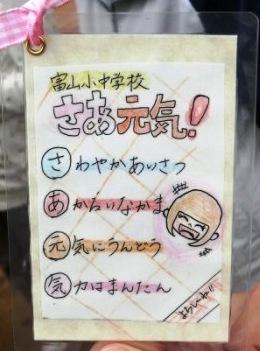 富山小中学校
さあ元気！
さわやかあいさつ
あかるいなかま
元気にうんどう
気力はまんたん